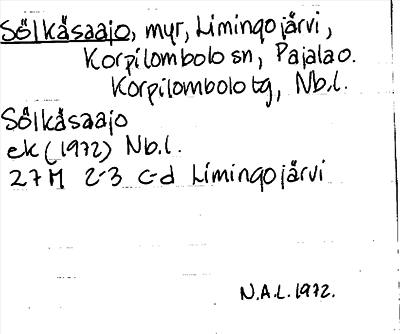 Sölkäsaajo, myr, Limingojärvi,
Korpilombolo sn, Pajala o.
Korpilombolo tg, Nb.l.
Sölkäsaajo
ek (1972) Nb.l.
27M 2-3 c-d Limingojärvi
N.A.L. 1972.